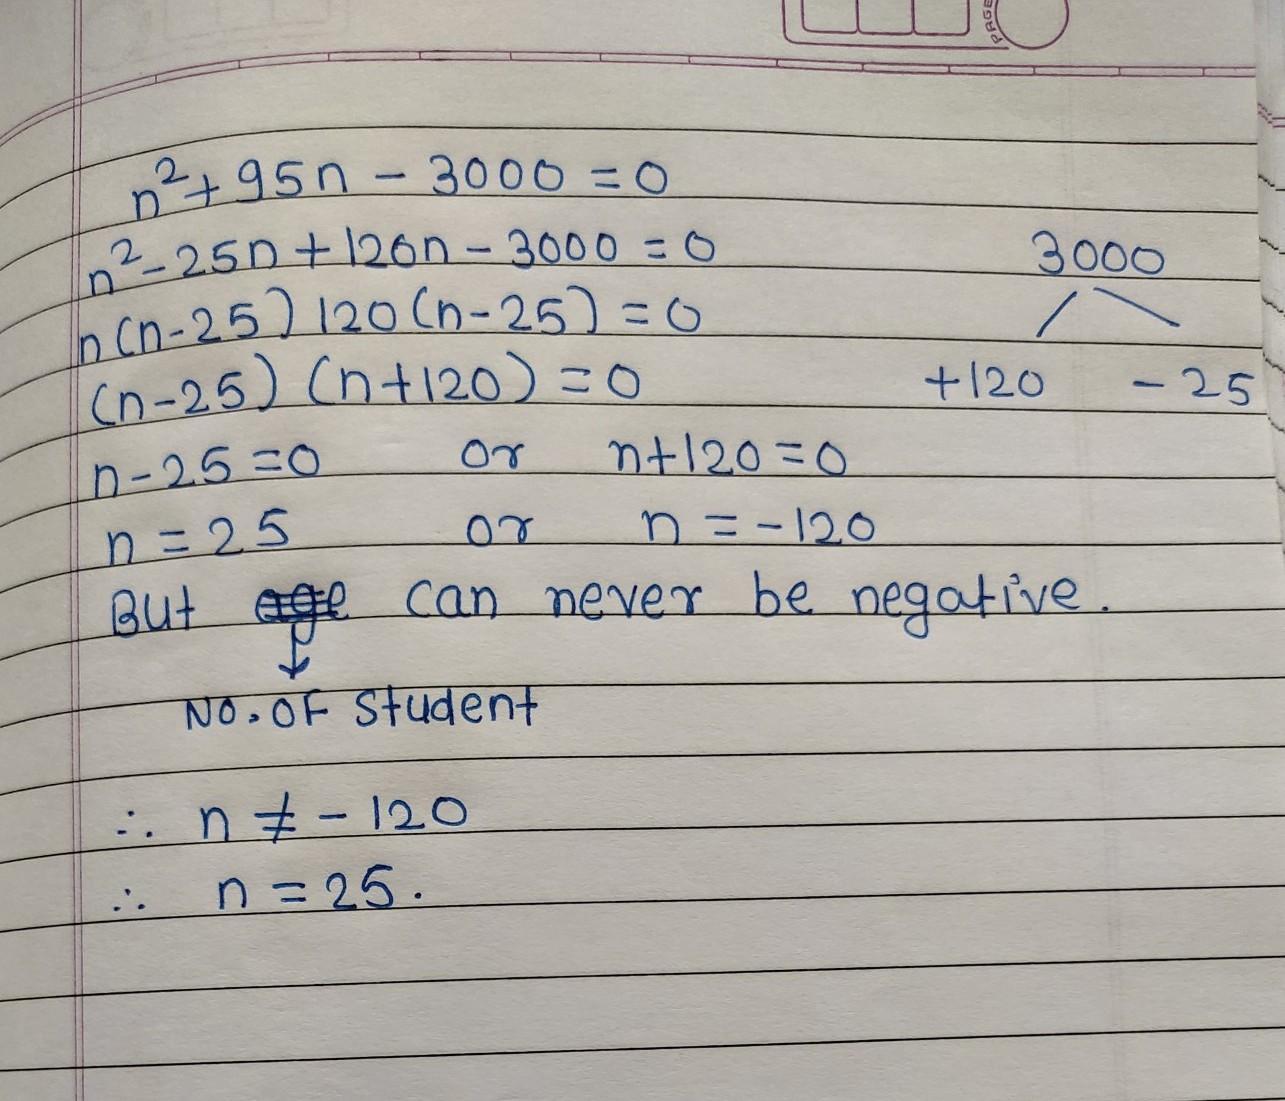 PAGE
n²+95n - 3000 = 0
n²-25n + 120n - 3000 = 0
n(n-25) 120(n-25) = 0
(n-25) (n+120) = 0
n-25=0 or n+120=0
n = 25 or n = -120
But age can never be negative.
↓
No. of Student
∴ n ≠ - 120
∴ n = 25.
3000
+120 - 25